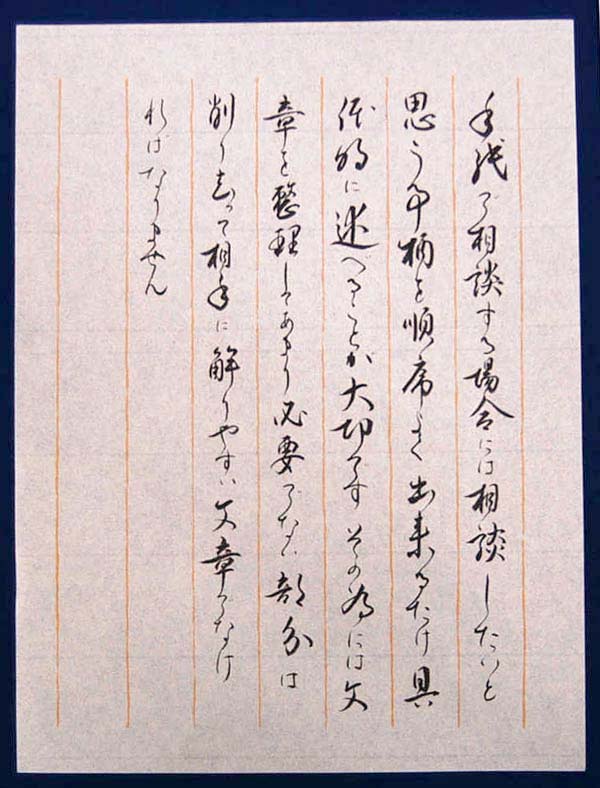 手紙で相談する場合には相談したいと
思う事柄を順序よく出来るだけ具
体的に述べることが大切です その為には文
章を整理しあまり必要でない部分は
削り去って相手に解りやすい文章でなけ
ればなりません